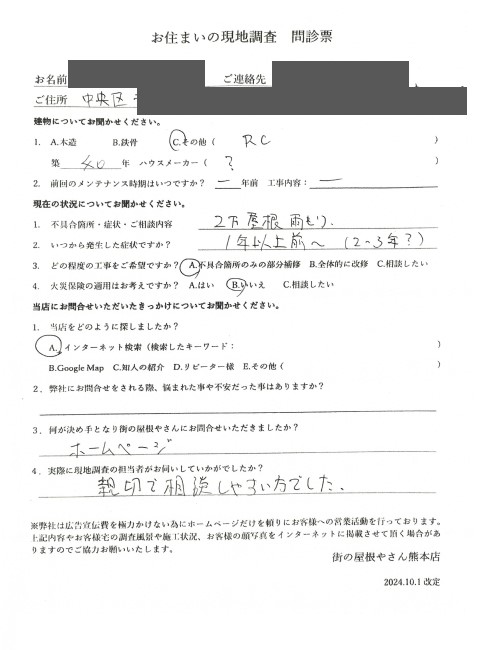 お住まいの現地調査　問診票
お名前　ご連絡先
ご住所　中央区
建物についてお聞かせください。
1.　A.木造　B.鉄骨　C.その他（　RC　）
築　40　年　ハウスメーカー（　?　）
2.　前回のメンテナンス時期はいつですか？　ー　年前　工事内容：　ー
現在の状況についてお聞かせください。
1.　不具合箇所・症状・ご相談内容　2万屋根 雨もり.
2.　いつから発生した症状ですか？　1年以上前〜（2〜3年?）
3.　どの程度の工事をご希望ですか？　A.不具合箇所のみの部分補修　B.全体的に改修　C.相談したい
4.　火災保険の適用はお考えですか？　A.はい　B.いいえ　C.相談したい
当店にお問合せいただいたきっかけについてお聞かせください。
1.　当店をどのように探しましたか？
A.インターネット検索（検索したキーワード：　）
B.Google Map　C.知人の紹介　D.リピーター様　E.その他（　）
2．弊社にお問合せをされる際、悩まれた事や不安だった事はありますか？
3．何が決め手となり街の屋根やさんにお問合せいただきましたか？
ホームページ
4．実際に現地調査の担当者がお伺いしていかがでしたか？
親切で相談しやすい方でした.
※弊社は広告宣伝費を極力かけない為にホームページだけを頼りにお客様への営業活動を行っております。
上記内容やお客様宅の調査風景や施工状況、お客様の顔写真をインターネットに掲載させて頂く場合があ
りますのでご協力お願いいたします。
街の屋根やさん熊本店
2024.10.1 改定